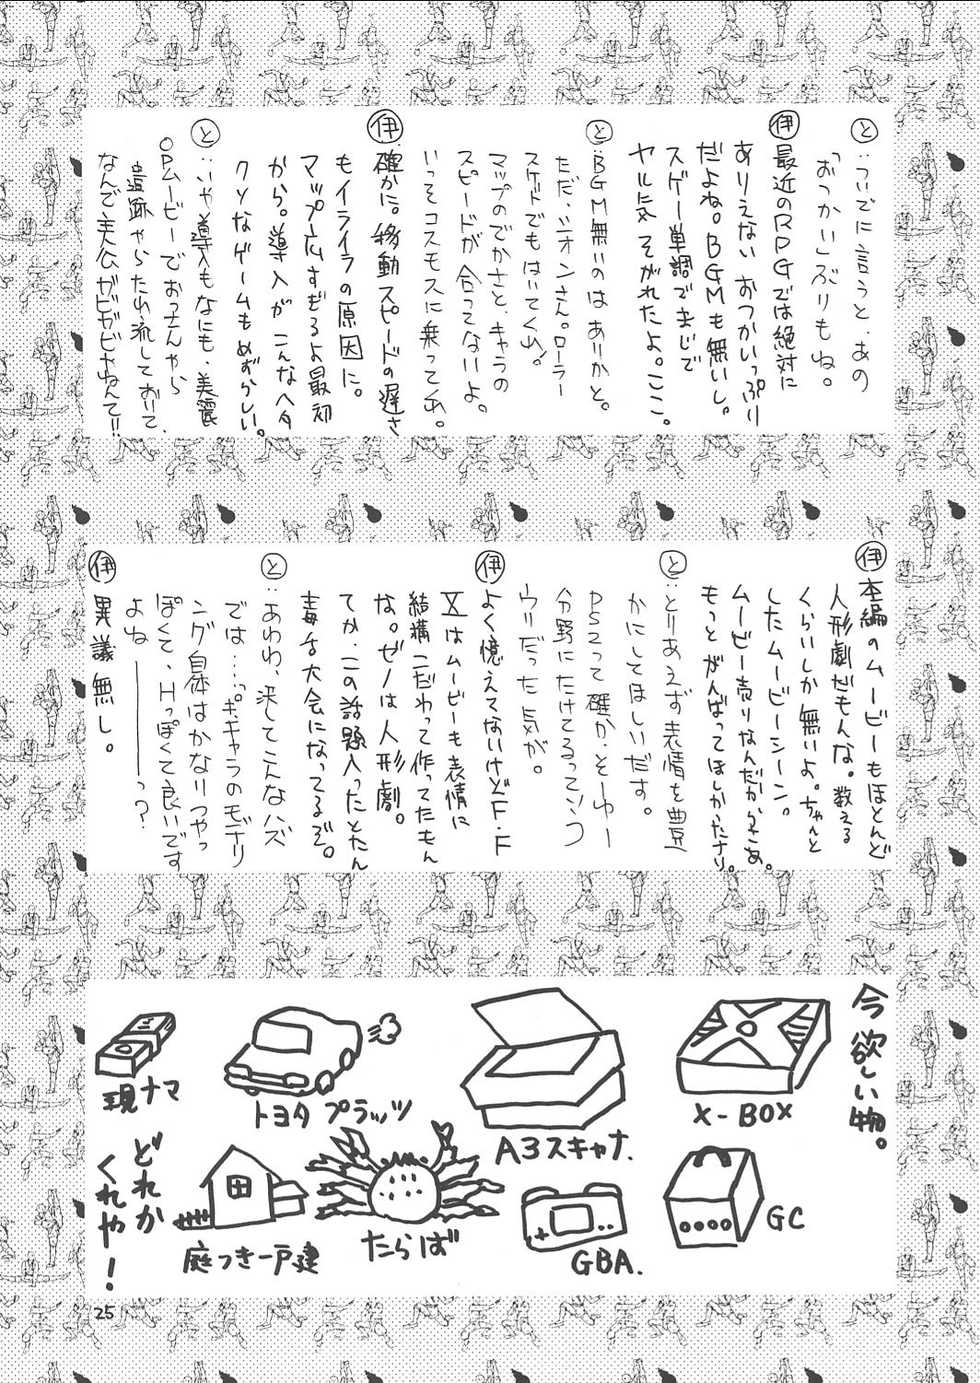 と：ついでに言うと、あの
「おつかい」ぶりもね。
伊 最近のRPGでは絶対に
ありえない おつかいっぷり
だよね。BGMも無いし。
スゲー単調でまじで
ヤル気 そがれたよ。ここ。
と：BGM無いのはありかと。
ただ、シオンさん。ローラー
スケートでもはいてくれ！
マップのでかさと、キャラの
スピードが合ってないよ。
いっそコスモスに乗ってくれ。
伊 確かに。移動スピードの遅さ
もイライラの原因に。
マップ広すぎるよ最初
から。導入がこんなヘタ
クソなゲームもめずらしい。
と：いや導入もなにも、美麗
OPムービーでおっさんやら
遺跡やらたれ流しておいて、
なんで美仏ガビガビやねんて!!
伊 本編のムービーもほとんど
人形劇だもんな。数える
くらいしか無いよ。ちゃんと
したムービーシーン。
ムービー売りなんだからさあ。
もっとがんばってほしかったナリ。
と：とりあえず表情を豊
かにしてほしいだす。
PS2って確か、そーゆー
分野にたけてるってソコ
ウリだった気が。
伊 よく憶えてないけどF・F
Xはムービーも表情に
結構こだわって作ってたもん
な。ゼノは人形劇。
てか、この話題入ったとたん
毒舌大会になってるぞ。
と：あわわ、決してこんなハズ
では…。キャラのモデリ
ング自体はかなりつやっ
ぽくて、Hっぽくて良いです
よね――――っ?
伊 異議無し。
今欲しい物。
X-BOX
A3スキャナ.
トヨタ プラッツ
現ナマ
GC
GBA.
たらば
庭つき一戸建
どれか
くれや！
25